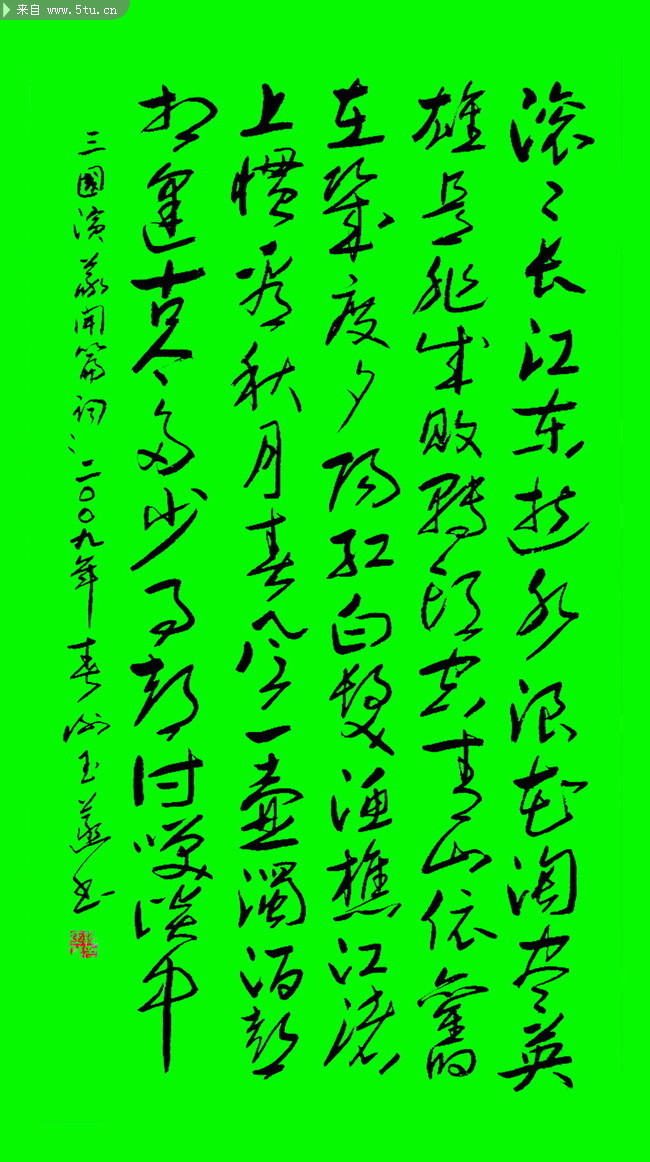 来自 www.5tu.cn
滚々长江东逝水浪花淘尽英
雄是非成败轉头空青山依舊
在幾度夕阳红白髮渔樵江渚
上惯看秋月春风一壶濁酒喜
相逢古今多少事都付笑谈中
三國演義開篇词二〇〇九年春玉燕书